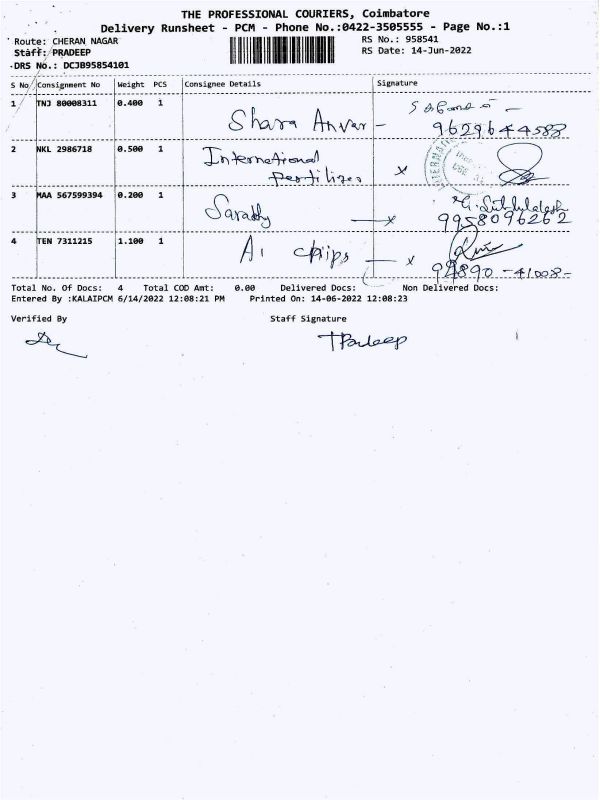 THE PROFESSIONAL COURIERS, Coimbatore
Delivery Runsheet - PCM - Phone No.:0422-3505555 - Page No.:1
Route: CHERAN NAGAR
RS No.: 958541
Staff: PRADEEP
RS Date: 14-Jun-2022
DRS No.: DCJB95854101
S No Consignment No Weight PCS Consignee Details Signature
1 TNJ 80008311 0.400 1 Shara Anvar -
9629644583
2 NKL 2986718 0.500 1 International
Fertilizer x
3 MAA 567599394 0.200 1 Sarathy x
9958096262
4 TEN 7311215 1.100 1 A1 chips x
94890-41008-
Total No. Of Docs: 4 Total COD Amt: 0.00 Delivered Docs: Non Delivered Docs:
Entered By :KALAIPCM 6/14/2022 12:08:21 PM Printed On: 14-06-2022 12:08:23
Verified By Staff Signature
TPradeep